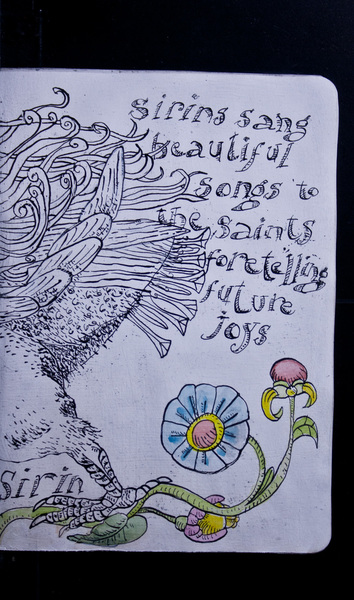 Sirins sang
beautiful
songs to
the Saints
foretelling
future
joys
Sirin